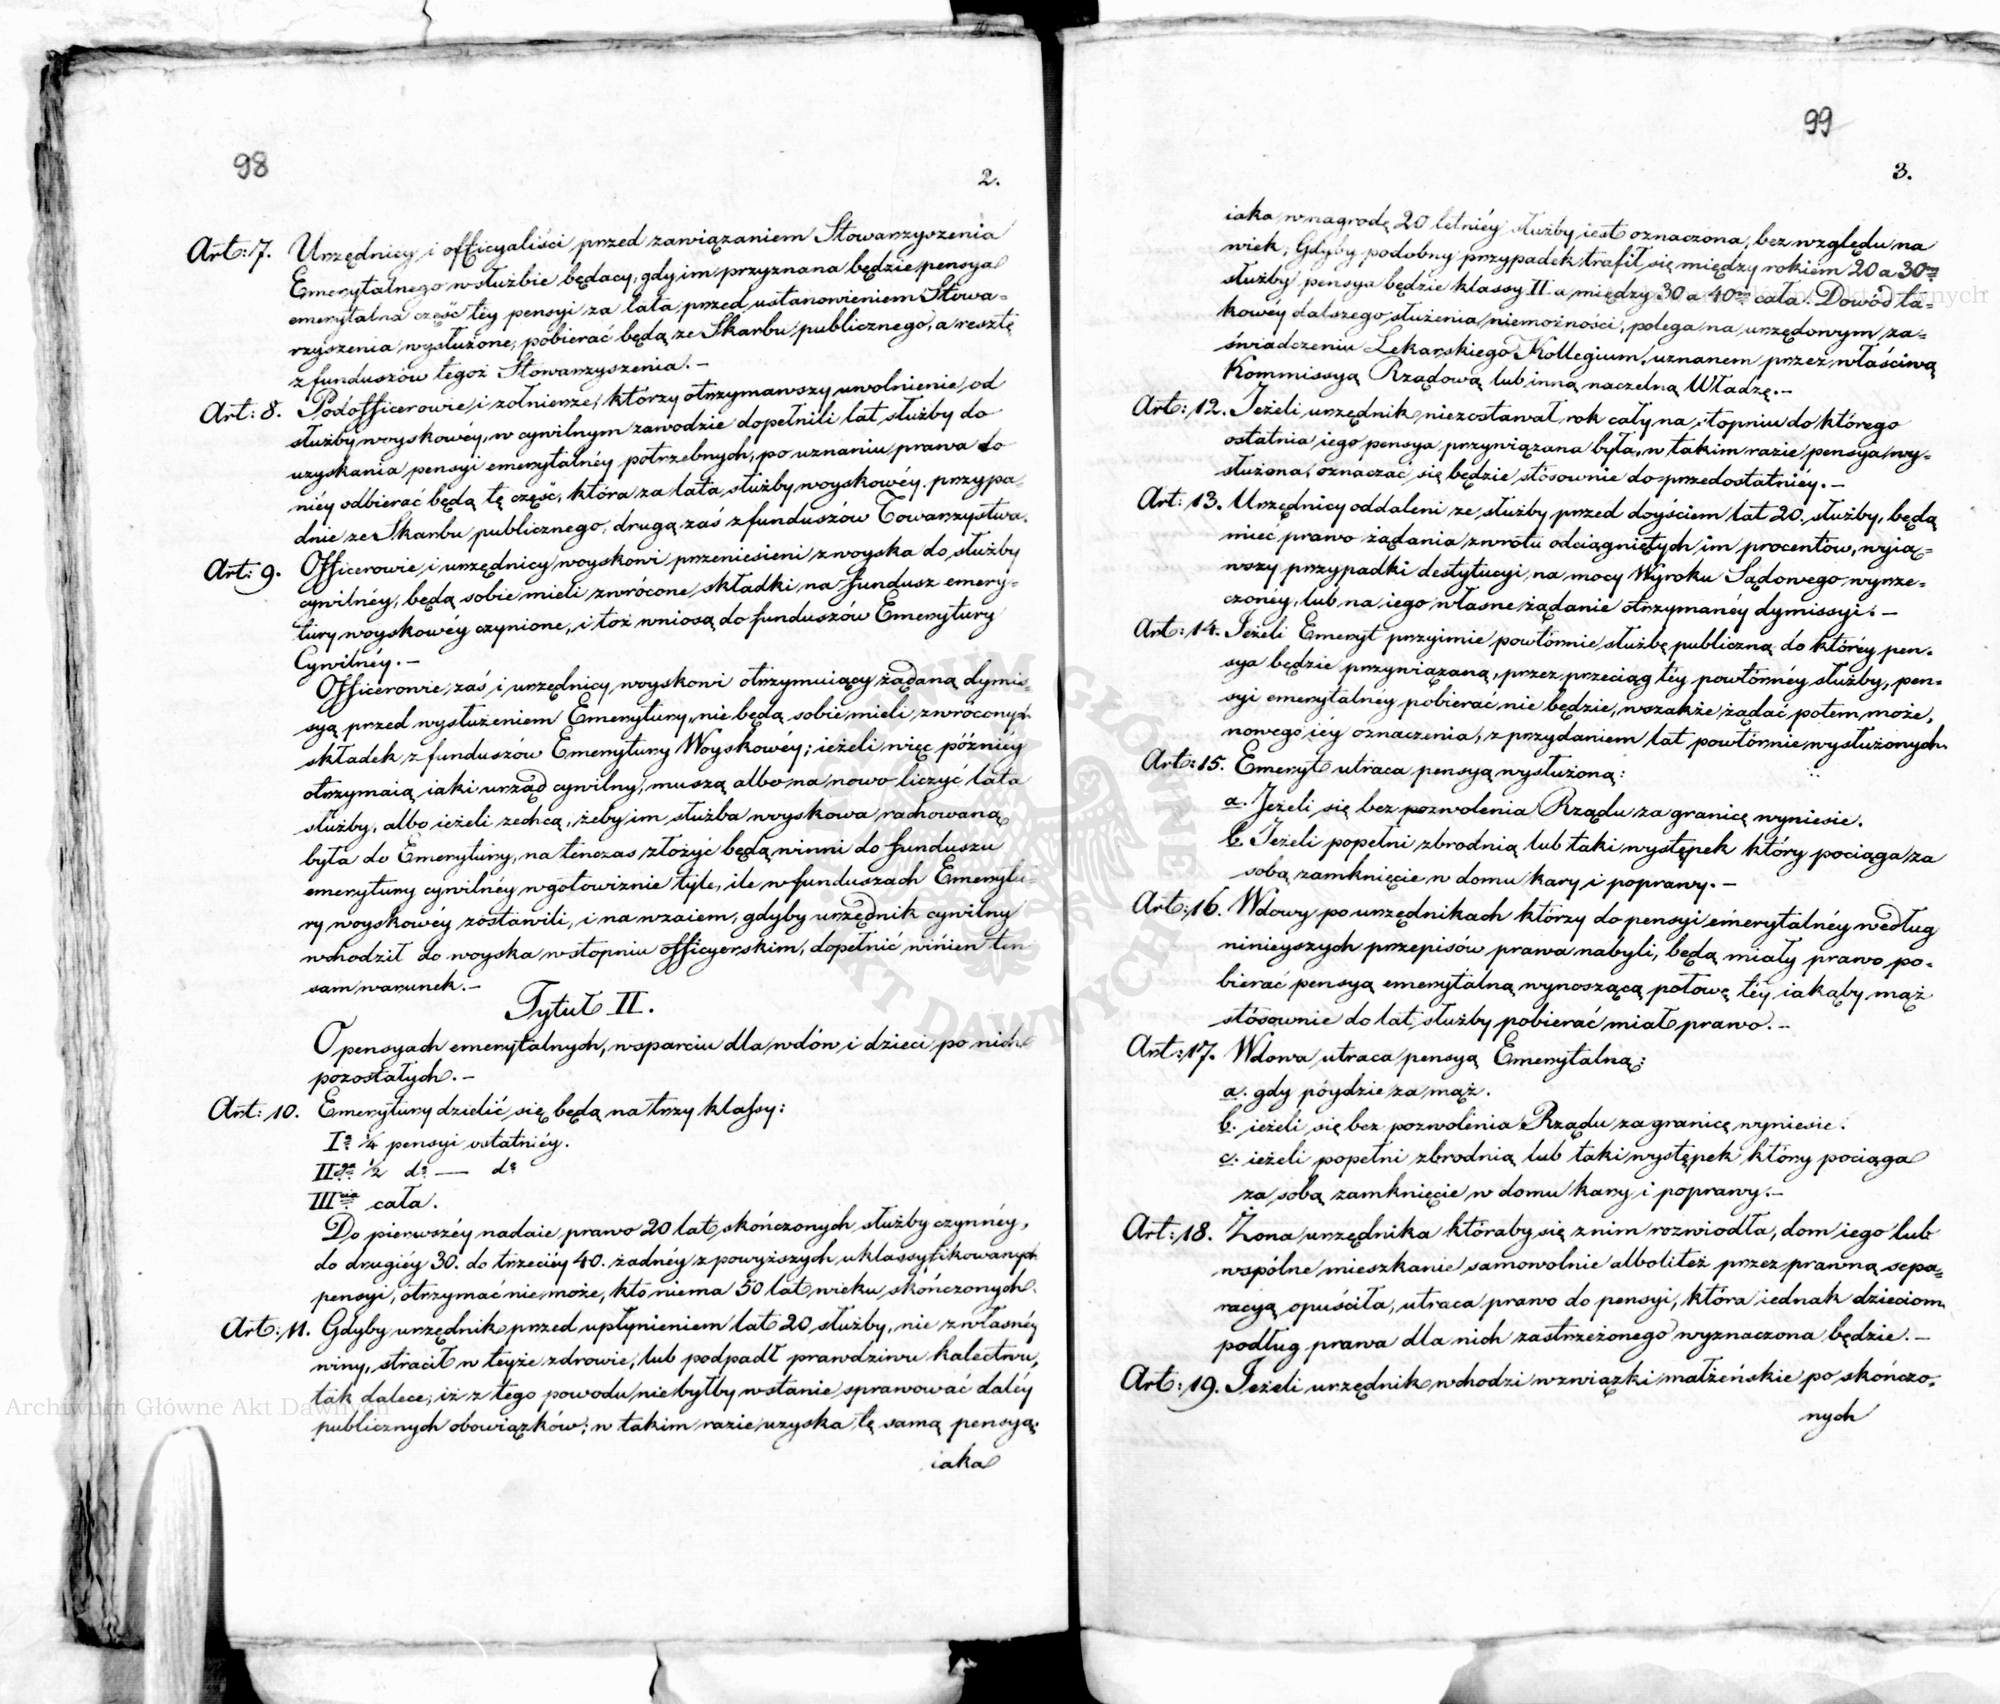 98
2.
Art: 7. Urzędnicy i officyaliści przed zawiązaniem Stowarzyszenia
Emerytalnego w służbie będący, gdy im przyznana będzie pensya
emerytalna część téy pensyi za lata przed ustanowieniem Stowa=
rzyszenia wysłużone, pobierać będą ze Skarbu publicznego, a resztę
z funduszów tegoż Stowarzyszenia. –
Art: 8. Podofficerowie i żołnierze, którzy otrzymawszy uwolnienie od
służby woyskowéy, w cywilnym zawodzie dopełnili lat służby do
uzyskania pensyi emerytalnéy potrzebnych, po uznaniu prawa do
niéy odbierać będą tę część, która za lata służby woyskowéy przypa=
dnie ze Skarbu publicznego, drugą zaś z funduszów Towarzystwa.
Art: 9. Officerowie i urzędnicy woyskowi przeniesieni z woyska do służby
cywilnéy, będą sobie mieli zwrócone składki na fundusz emery=
tury woyskowéy czynione, i też wniosą do funduszów Emerytury
Cywilnéy. –
Officerowie zaś i urzędnicy woyskowi otrzymuiący żądaną dymis=
syą przed wysłużeniem Emerytury, nie będą sobie mieli zwróconych
składek z funduszów Emerytury Woyskowéy; ieżeli więc późniéy
otrzymaią iaki urząd cywilny, muszą albo na nowo liczyć lata
służby, albo ieżeli zechcą, żeby im służba woyskowa rachowaną
była do Emerytury, na tenczas złożyć będą winni do funduszu
emerytury cywilnéy w gotowiznie tyle, ile w funduszach Emerytu=
ry woyskowéy zostawili, i na wzaiem, gdyby urzędnik cywilny
wchodził do woyska w stopniu officyerskim, dopełnić winien ten
sam warunek. –
Tytuł II.
O pensyach emerytalnych, wsparciu dla wdów i dzieci po nich
pozostałych. –
Art: 10. Emerytury dzielić się będą na trzy klassy:
Iª ¼ pensyi ostatniéy.
IIga ½ dº — dº
IIIcia cała.
Do pierwszéy nadaie prawo 20 lat skończonych służby czynnéy,
do drugiéy 30. do trzeciéy 40. żadnéy z powyższych uklassyfikowanych
pensyi, otrzymać nie może, kto niema 50 lat wieku skończonych.
Art: 11. Gdyby urzędnik przed upłynieniem lat 20 służby, nie z własnéy
winy, stracił w teyże zdrowie, lub podpadł prawdziwu kalectwu,
tak dalece, iż z tego powodu nie byłby w stanie sprawować daléy
publicznych obowiązków; w takim razie uzyska tę samą pensyą,
iaka
99
3.
iaka w nagrodę 20 letniéy służby iest oznaczona, bez względu na
wiek; Gdyby podobny przypadek trafił się między rokiem 20 a 30ym
służby pensya będzie klassy II a między 30 a 40ym cała. Dowód ta=
kowéy dalszego służenia niemożności, polega na urzędowym za=
świadczeniu Lekarskiego Kollegium, uznanem przez właściwą
Kommissyą Rządową lub inną naczelną Władzę. –
Art: 12. Jeżeli urzędnik niezostawał rok cały na stopniu do którego
ostatnia iego pensya przywiązana była, w takim razie pensya wy=
służona, oznaczać się będzie stósownie do przedostatniéy. –
Art: 13. Urzędnicy oddaleni ze służby przed doyściem lat 20. służby, będą
mieć prawo żądania zwrotu odciągniętych im procentów, wyią=
wszy przypadki destytucyi na mocy Wyroku Sądowego wyrze=
czonéy, lub na iego własne żądanie otrzymanéy dymissyi. –
Art: 14. Jeżeli Emeryt przyimie powtórnie służbę publiczną do któréy pen=
sya będzie przywiązaną, przez przeciąg téy powtórnéy służby, pen=
syi emerytalnéy pobierać nie będzie, wszakże żądać potem może,
nowego iéy oznaczenia, z przydaniem lat powtórnie wysłużonych.
Art: 15. Emeryt utraca pensyą wysłużoną:
a. Jeżeli się bez pozwolenia Rządu za granicę wyniesie.
b. Jeżeli popełni zbrodnią lub taki występek który pociąga za
sobą zamknięcie w domu kary i poprawy. –
Art: 16. Wdowy po urzędnikach którzy do pensyi emerytalnéy według
ninieyszych przepisów prawa nabyli, będą miały prawo po=
bierać pensyą emerytalną wynoszącą połowę téy iakąby mąż
stósownie do lat służby pobierać miał prawo. –
Art: 17. Wdowa utraca pensyą Emerytalną:
a. gdy póydzie za mąż.
b. ieżeli się bez pozwolenia Rządu za granicę wyniesie.
c. ieżeli popełni zbrodnią lub taki występek który pociąga
za sobą zamknięcie w domu kary i poprawy. –
Art: 18. Żona urzędnika któraby się z nim rozwiodła, dom iego lub
wspólne mieszkanie samowolnie albo liteż przez prawną sepa=
racyą opuściła, utraca prawo do pensyi, która iednak dzieciom
podług prawa dla nich zastrzeżonego wyznaczona będzie. –
Art: 19. Jeżeli urzędnik wchodzi w związki małżeńskie po skończo=
nych
Archiwum Główne Akt Dawnych